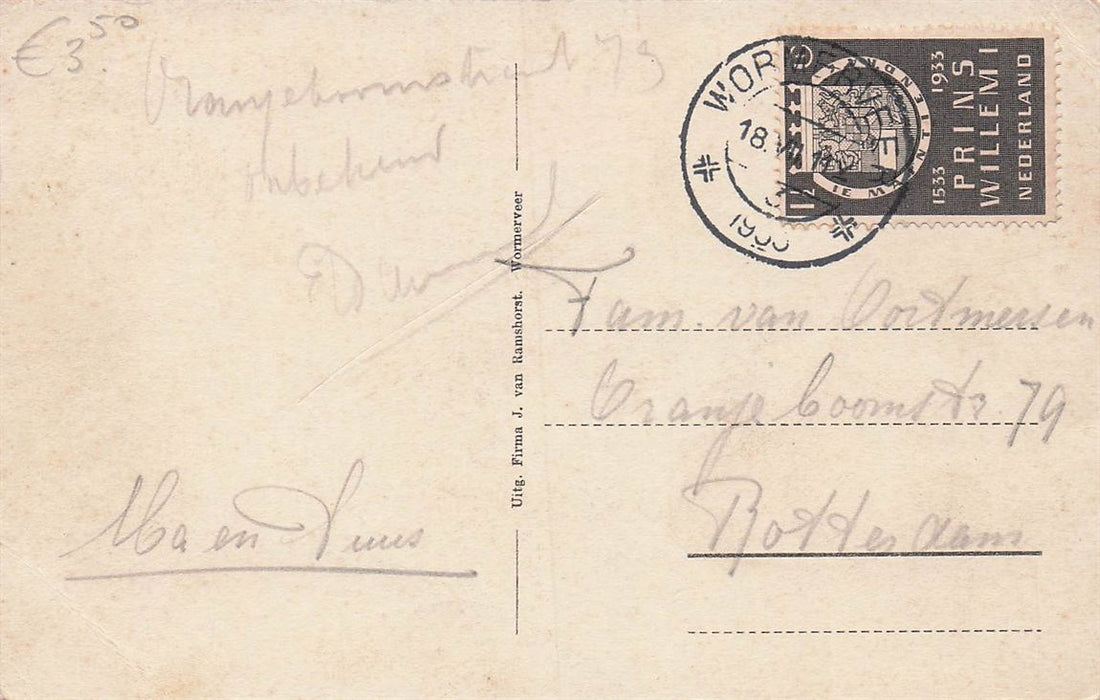 €3.50
Oranjeboomstraat 79
onbekend
Ma en Puus
Uitg. Firma J. van Ramshorst. Wormerveer
WORMERVEER
18.VII 1933
JE MAINTIENDRAI
1½ CT
1533 1933
PRINS
WILLEM I
NEDERLAND
Fam. van Oostmerssen
Oranjeboomstr. 79
Rotterdam